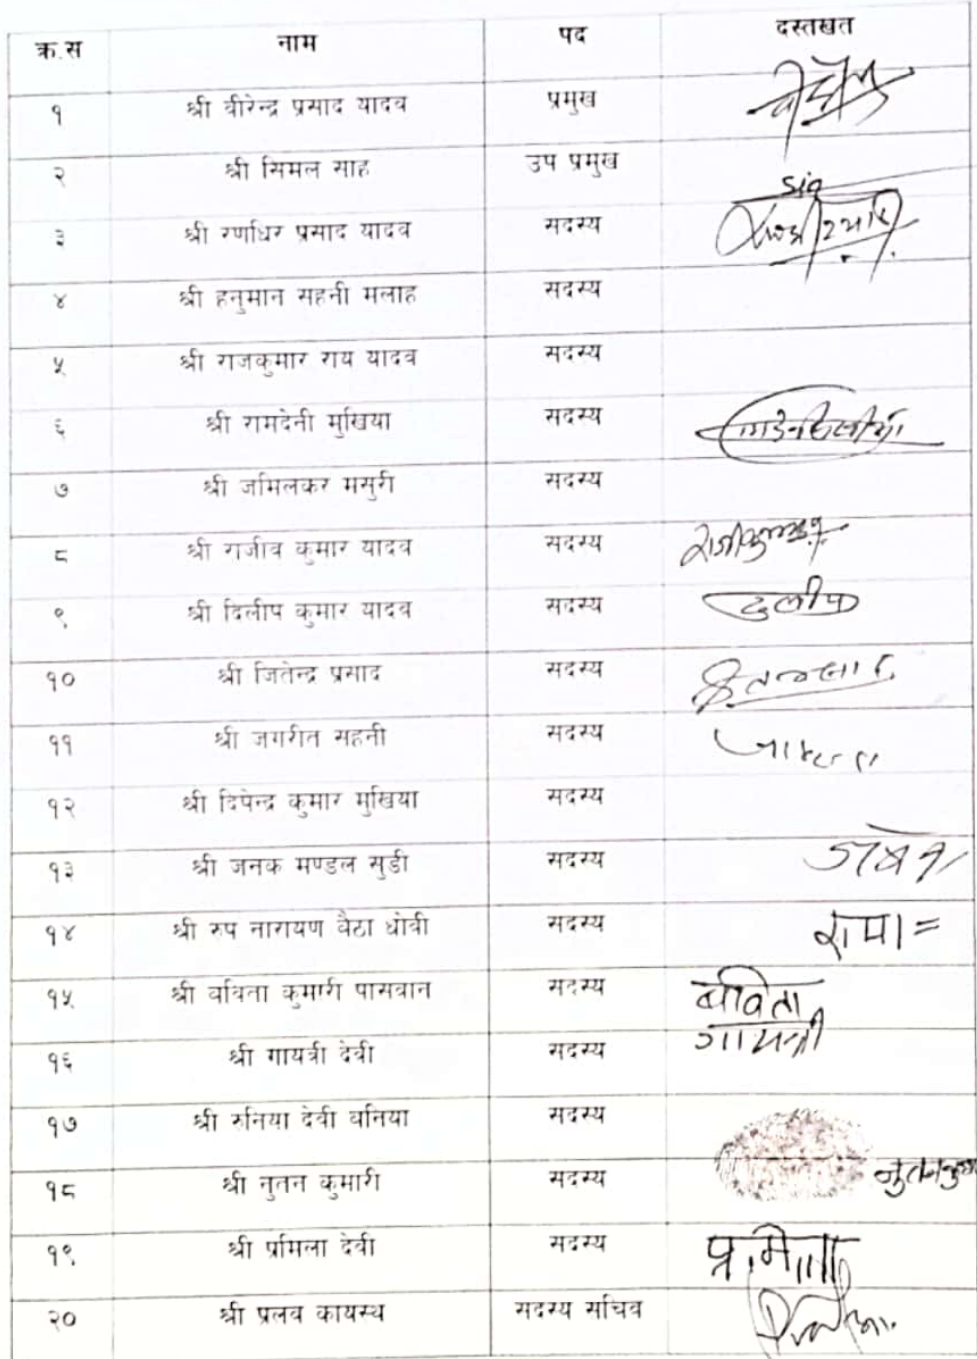 क्र.स नाम पद दस्तखत
१ श्री वीरेन्द्र प्रसाद यादव प्रमुख
२ श्री सिमल साह उप प्रमुख
३ श्री रणधिर प्रसाद यादव सदस्य
४ श्री हनुमान सहनी मलाह सदस्य
५ श्री राजकुमार राय यादव सदस्य
६ श्री रामदेनी मुखिया सदस्य
७ श्री जमिलकर मसुरी सदस्य
८ श्री राजीव कुमार यादव सदस्य
९ श्री दिलीप कुमार यादव सदस्य
१० श्री जितेन्द्र प्रसाद सदस्य
११ श्री जगरीत सहनी सदस्य
१२ श्री दिपेन्द्र कुमार मुखिया सदस्य
१३ श्री जनक मण्डल सुडी सदस्य
१४ श्री रुप नारायण बैठा धोवी सदस्य
१५ श्री वविता कुमारी पासवान सदस्य बविता
१६ श्री गायत्री देवी सदस्य गायत्री
१७ श्री रुनिया देवी वनिया सदस्य
१८ श्री नुतन कुमारी सदस्य
१९ श्री प्रमिला देवी सदस्य
२० श्री प्रलव कायस्थ सदस्य सचिव